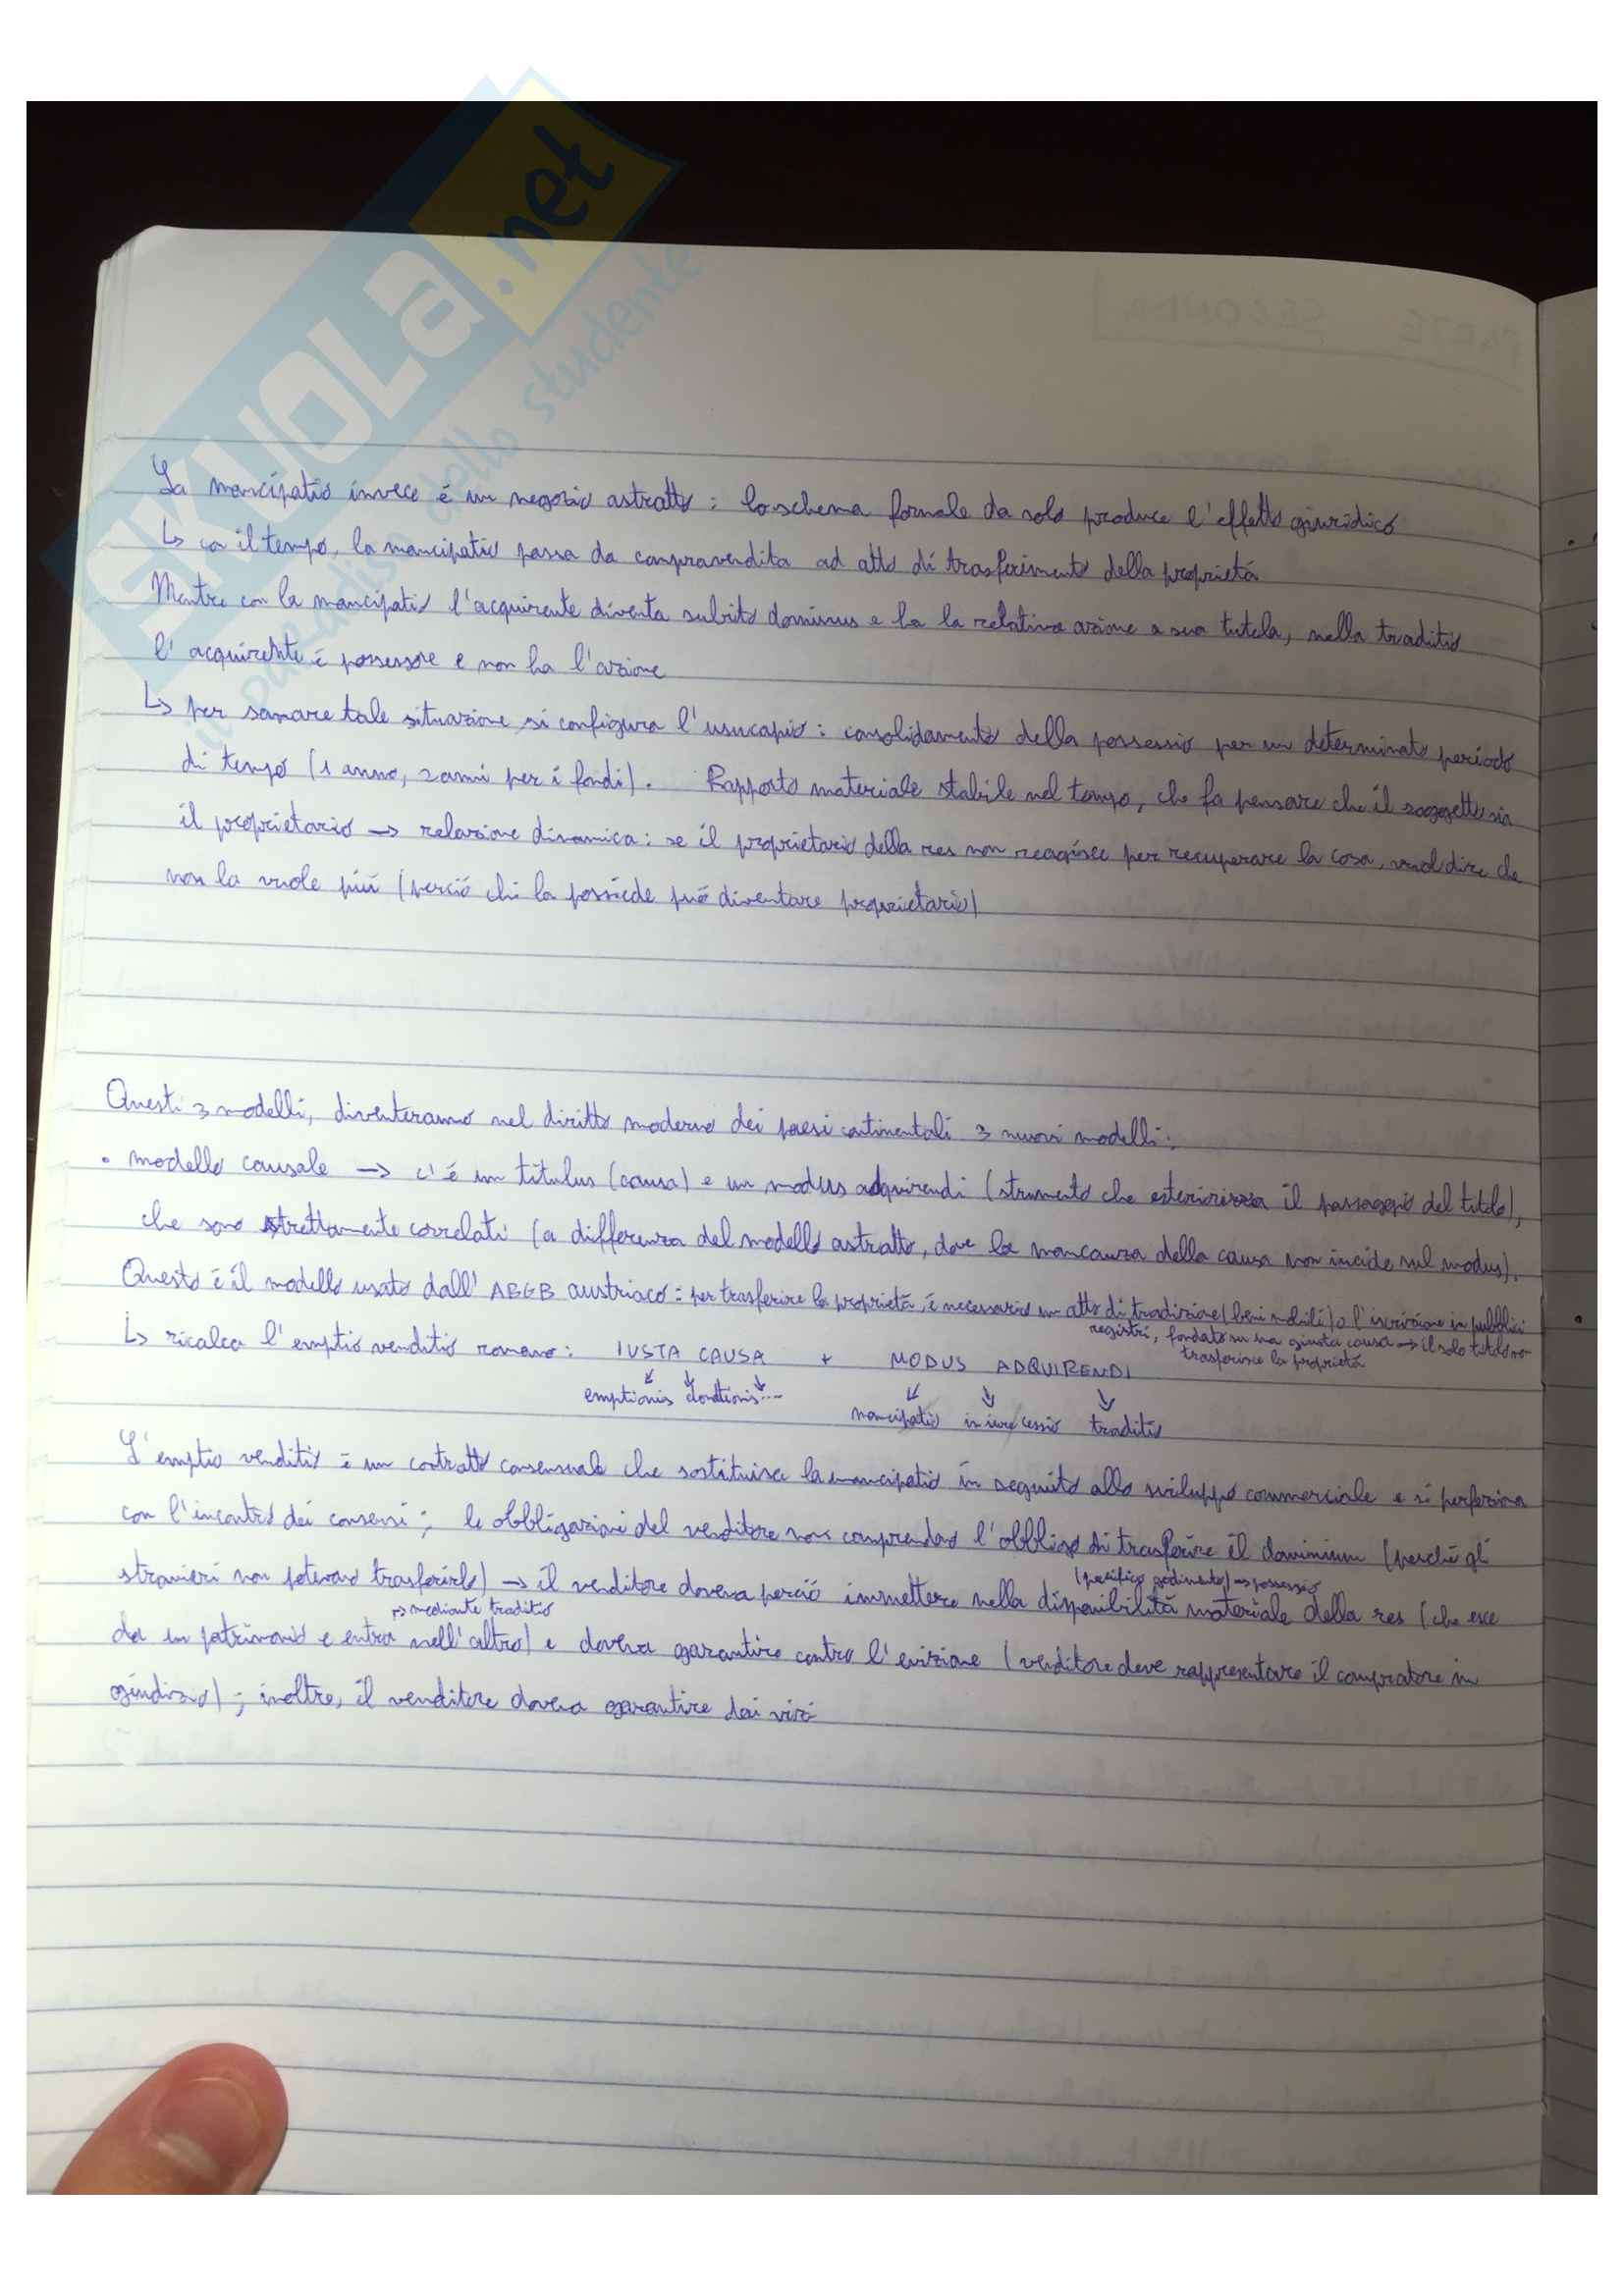 SKUOLA.net
il paradiso dello studente
La mancipatio invece è un negozio astratto: lo schema formale da solo produce l'effetto giuridico
↳ co il tempo, la mancipatio passa da compravendita ad atto di trasferimento della proprietà
Mentre con la mancipatio l'acquirente diventa subito dominus e ha la relativa azione a sua tutela, nella traditio
l'acquirente è possessore e non ha l'azione
↳ per sanare tale situazione si configura l'usucapio: consolidamento della possessio per un determinato periodo
di tempo (1 anno, 2 anni per i fondi). Rapporto materiale stabile nel tempo, che fa pensare che il soggetto sia
il proprietario → relazione dinamica: se il proprietario della res non reagisce per recuperare la cosa, vuol dire che
non la vuole più (perciò chi la possiede può diventare proprietario)
Questi 3 modelli, diventeranno nel diritto moderno dei paesi continentali 3 nuovi modelli:
• modello causale → c'è un titulus (causa) e un modus adquirendi (strumento che esteriorizza il passaggio del titolo),
che sono strettamente correlati (a differenza del modello astratto, dove la mancanza della causa non incide sul modus).
Questo è il modello usato dall'ABGB austriaco: per trasferire la proprietà, è necessario un atto di tradizione (beni mobili) o l'iscrizione in pubblici
registri, fondato su una giusta causa → il solo titolo no
trasferisce la proprietà
↳ ricalca l'emptio venditio romana: IUSTA CAUSA + MODUS ADQUIRENDI
↙ ↓ ↘ ↙ ↓ ↓
emptionis donationis ...
mancipatio in iure cessio traditio
L'emptio venditio è un contratto consensuale che sostituisce la mancipatio in seguito allo sviluppo commerciale e si perfeziona
con l'incontro dei consensi; le obbligazioni del venditore non comprendono l'obbligo di trasferire il dominium (perché gli
stranieri non potevano trasferirlo) → il venditore doveva perciò immettere nella disponibilità materiale della res (che esce
(pacifico godimento) → possessio
↱ mediante traditio
da un patrimonio e entra nell'altro) e doveva garantire contro l'evizione (venditore deve rappresentare il compratore in
giudizio); inoltre, il venditore doveva garantire dai vizi